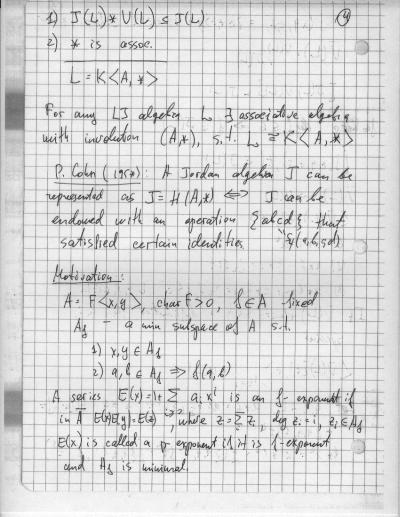 4
1) J(L) * U(L) ⊆ J(L)
2) * is assoc.
L = K<A, *>
For any LJ algebra L ∃ associative algebra
with involution (A,*), s.t. L ≅ K<A, *>
P. Cohn (195*): A Jordan algebra J can be
represented as J = H(A,*) <=> J can be
endowed with an operation {abcd} that
satisfied certain identities
Motivation:
A = F<x,y>, char F > 0, f ∈ A fixed
A_f - a min subspace of A s.t.
1) x,y ∈ A_f
2) a,b ∈ A_f => f(a,b)
A series E(x) = 1 + Σ a_i x^i is an f-exponent if
in A E(x)E(y) = E(z), where z = Σ z_i, deg z_i = i, z_i ∈ A_f
E(x) is called a exponent if it is f-exponent
and A_f is minimal.